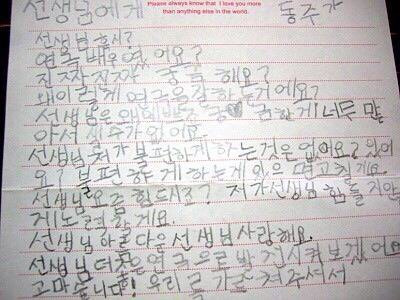 선생님에게 동주가
Please always know that I love you more
than anything else in the world.
선생님 혹시?
연극 배우였어요?
진짜진짜 궁금해요?
왜이렇게 연극을 잘하는거에요?
선생님은 궁♥금한게 너무 많
아서 셀수가 없어요.
선생님 저가 불편하게 하는것은 없어요? 있어
요? 불편하게 하는게 있으면 고칠게요.
선생님 요즘 힘드시죠? 저가 선생님 힘들지않
게 노력할게요.
선생님 아름다운 선생님 사랑해요.
선생님 더 좋은 연극으로 발전시켜보겠어요
고마습니다! 우리를 가르쳐주셔서